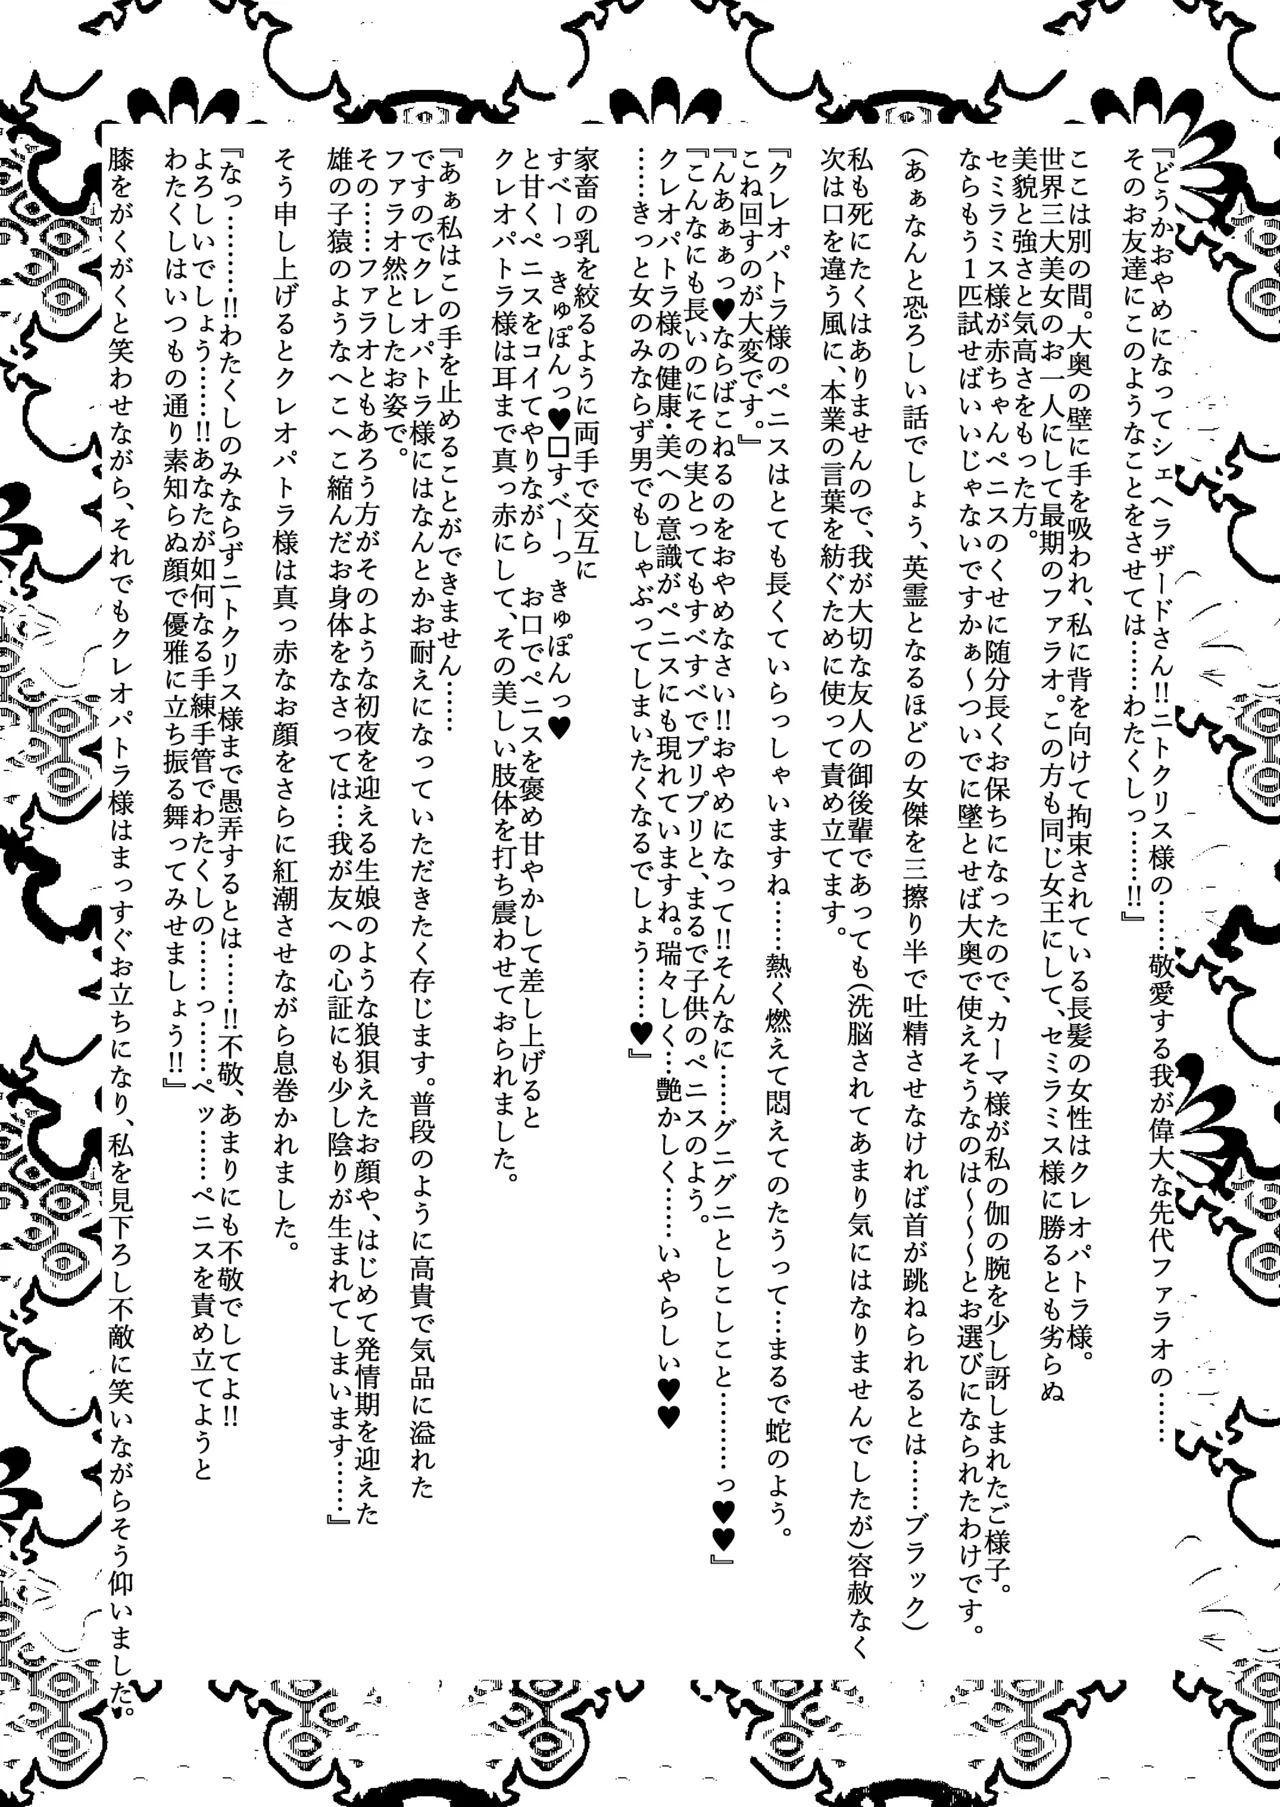 『どうかおやめになってシェヘラザードさん!!ニトクリス様の……敬愛する我が偉大な先代ファラオの……
そのお友達にこのようなことをさせては……わたくしっ……!!』
ここは別の間。大奥の壁に手を吸われ、私に背を向けて拘束されている長髪の女性はクレオパトラ様。
世界三大美女のお一人にして最期のファラオ。この方も同じ女王にして、セミラミス様に勝るとも劣らぬ
美貌と強さと気高さをもった方。
くせに随分長くお保ちになったので、カーマ様が私の伽の腕を少し訝しまれたご様子。
ならもう１匹試せばいいじゃないですかぁ～ついでに墜とせば大奥で使えそうなのは～～～とお選びになられたわけです。
(あぁなんと恐ろしい話でしょう、英霊となるほどの女傑を三擦り半で吐精させなければ首が跳ねられるとは……ブラック)
私も死にたくはありませんので、我が大切な友人の御後輩であっても(洗脳されてあまり気にはなりませんでしたが)容赦なく
次は口を違う風に、本業の言葉を紡ぐために使って責め立てます。
『クレオパトラ様のペニスはとても長くていらっしゃいますね……熱く燃えて悶えてのたうって…まるで蛇のよう。
こね回すのが大変です。』
『んあぁぁっ♥ならばこねるのをおやめなさい!!おやめになって!!そんなに……グニグニとしこしこと………っ♥♥』
『こんなにも長いのにその実とってもすべすべでプリプリと、
クレオパトラ様の健康・美への意識がペニスにも現れていますね。瑞々しく…艶かしく……いやらしい♥♥
……きっと女のみならず男でもしゃぶってしまいたくなるでしょう……♥』
家畜の乳を絞るように両手で交互に
すべーっ　きゅぽんっ♥□すべーっ　きゅぽんっ♥
と甘くペニスをコイてやりながら　お口でペニスを褒め甘やかして差し上げると
クレオパトラ様は耳まで真っ赤にして、その美しい肢体を打ち震わせておられました。
『あぁ私はこの手を止めることができません……
ですのでクレオパトラ様にはなんとかお耐えになっていただきたく存じます。普段のように高貴で気品に溢れた
ファラオ然としたお姿で。
その……ファラオともあろう方がそのような初夜を迎える生娘のような狼狽えたお顔や、はじめて発情期を迎えた
雄の子猿のようなへこへこ縮んだお身体をなさっては…我が友への心証にも少し陰りが生まれてしまいます……』
そう申し上げるとクレオパトラ様は真っ赤なお顔をさらに紅潮させながら息巻かれました。
『なっ………!!わたくしのみならずニトクリス様まで愚弄するとは……!!不敬、あまりにも不敬でしてよ!!
よろしいでしょう……!!あなたが如何なる手練手管でわたくしの……っ……ペッ……ペニスを責め立てようと
わたくしはいつもの通り素知らぬ顔で優雅に立ち振る舞ってみせましょう!!』
膝をがくがくと笑わせながら、それでもクレオパトラ様はまっすぐお立ちになり、私を見下ろし不敵に笑いながらそう仰いました。